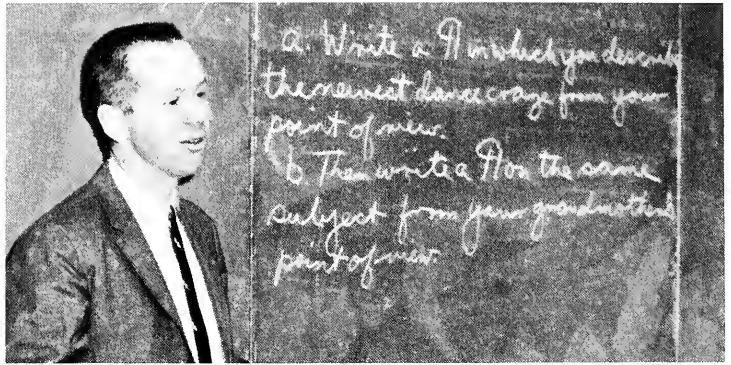 a. Write a ¶ in which you describe
the newest dance craze from your
point of view.
b. Then write a ¶ on the same
subject from your grandmother's
point of view.